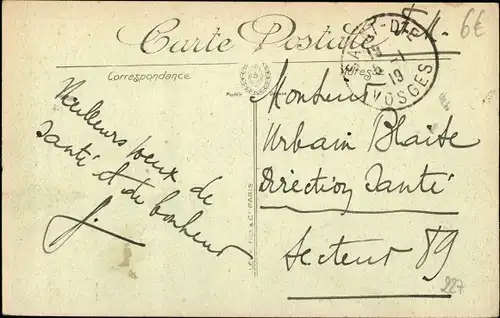 F.M.
6€
Carte Postale
SAINT-DIÉ
VOSGES
Correspondance
Adresse
Meilleurs voeux de
Santé et de bonheur
J.
Monsieur
Urbain Blaise
Direction Santé
Secteur 89
227